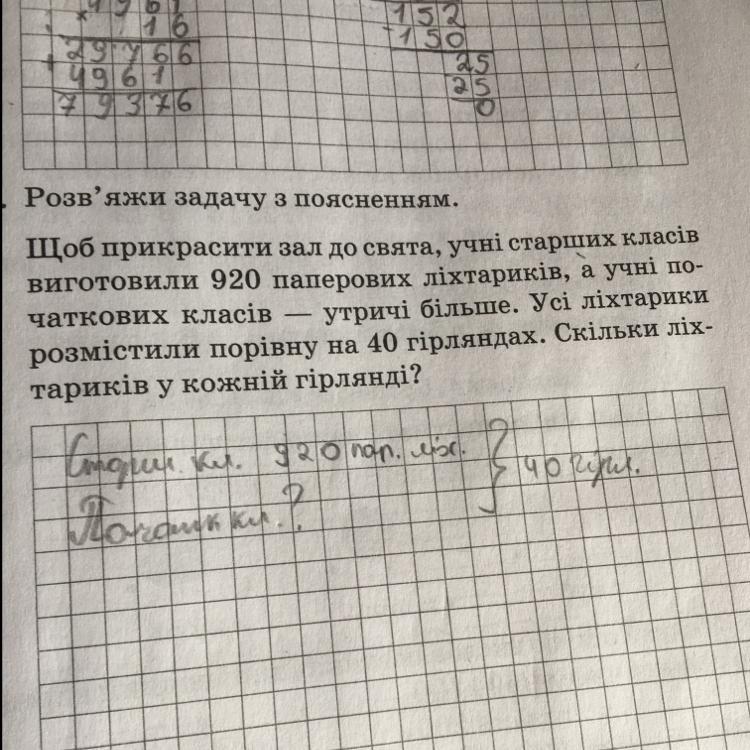 × 4961
16
29766
+ 4961
79376
152
- 150
25
25
0
Розв’яжи задачу з поясненням.
Щоб прикрасити зал до свята, учні старших класів
виготовили 920 паперових ліхтариків, а учні по-
чаткових класів — утричі більше. Усі ліхтарики
розмістили порівну на 40 гірляндах. Скільки ліх-
тариків у кожній гірлянді?
Старш. кл. 920 пап. ліх. } 40 гірл.
Початк кл. ?